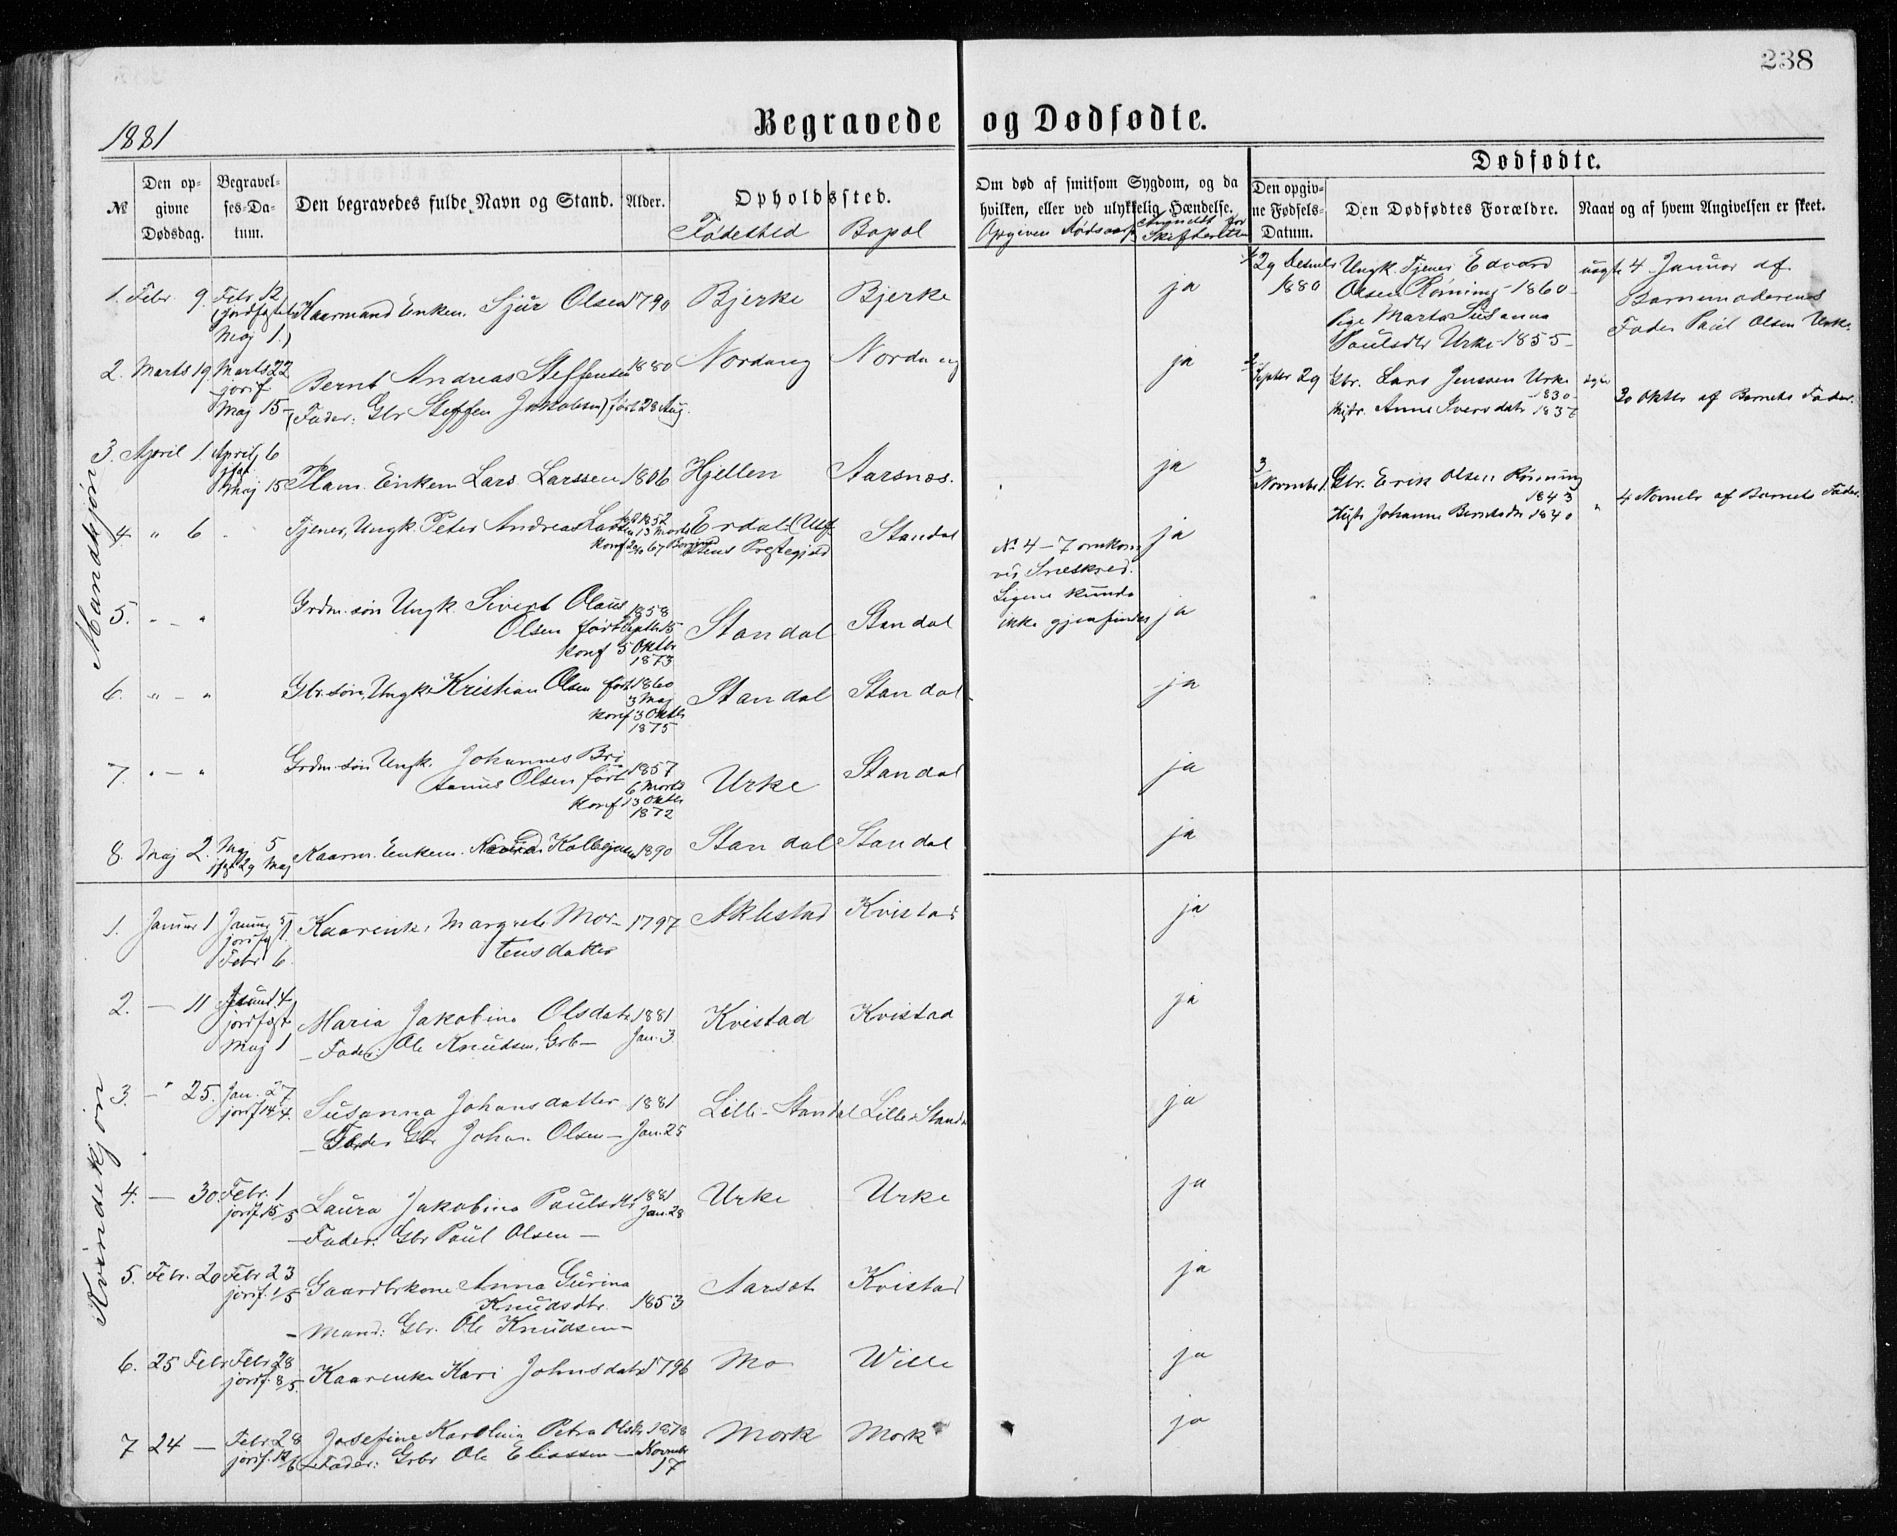 238
1881
Begravede og Dødfødte.
№
Den opgivne Dødsdag.
Begravelses-Datum.
Den begravedes fulde Navn og Stand.
Alder.
Opholdssted.
Fødested
Bopæl
Om død af smitsom Sygdom, og da hvilken, eller ved ulykkelig Hændelse.
Opgiven Dødsaarsag
Anmeldt for Skifteretten
Dødfødte.
Den opgivne Fødsels-Datum.
Den Dødfødtes Forældre.
Naar og af hvem Angivelsen er skeet.
Mandkjøn
1. Febr 9. Febr 12 Kaarmand Enkem. Sjur Olsen 1790 Bjerke Bjerke ja
jordfæstet
Maj 1.)
2. Marts 19. Marts 22 Bernt Andreas Steffensen 1880 Nordang Nordang ja
jorf
Maj 15 – (Fader: Gbr Steffen Jakobsen) født 28 Aug.
3. April 1. April 6 Flam. Enkem Lars Larssen 1806 Hjellen Aarsnes. ja
Maj 15
4. " 6 Tjener, Ungk. Peter Andreas 1852 Erdal Standal ja
13 Marts
konf 67 Prestegjeld
№ 4 – 7 omkom
ved Sneskred.
Ligene kunde
ikke gjenfindes
5. " – " Grdm. søn Ungk Sivert Olaus 1858 Standal Standal ja
Olsen født Septbr 15
konf 5 Oktbr
1873
6. " – " Gbr. søn, Ungk Kristian Olsen født 1860 Standal Standal ja
3 Maj
konf 3 Oktbr
1875
7. " – " Grdm. søn Ungk. Johannes Bri
tanus Olsen født 1857 Urke Standal ja
6 Marts
konf 13 Oktbr
1872
8. Maj 2. Maj 5 Kaarm. Enkem. 1890 Standal Standal ja
29 Maj
1/ 29 Decmbr 1880 Ungk. Tjener Edvard uægte 4 Januar af
Olsen Rønning 1860 Barnemoderens
Pige Marta Susanna Fader Paul Olsen Urke
Paulsdtr Urke 1855 –
2/ Septbr 29 Gbr. Lars Jenssen Urke 1830 ægte 30 Oktbr af Barnets Fader.
Hustr. Anne Iversdatr
3/ Novmbr 1. Gbr. Erik Olsen Rønning 1843 " 4 Novmbr af Barnets Fader.
Hustr Johanne Berntsdtr 1840
Kvindekjøn
1. Januar 1 Kaarenk. Margrete Mor– 1797 Aklestad Kvistad ja
jordfst. tensdatter
Febr 6.
2. – 11 Maria Jakobine Olsdatr 1881 Kvistad Kvistad ja
jordfæst
Maj 1 – Fader: Ole Knudsen, Grb – Jan. 3
3. – " 25. Jan. 27 Susanna Johansdatter 1881 Lille-Standal Lille-Standal ja
jordf
– Fader Gbr Johan Olsen – Jan. 25
4. – 30 Febr. 1 Laura Jakobine Paulsdtr 1881 Urke Urke ja
jordf. 15/5 Jan. 28
– Fader: Gbr Paul Olsen –
5. Febr. 20 Febr 23 Gaardbrkone Anna Gurina Aarsæt Kvistad ja
jorf. 1/5 Knudsdtr. 1853
– Mand: Gbr. Ole Knudsen –
6. 25 Febr Febr 28 Kaarenke Kari Johnsdatr 1796 Mo Wille ja
jordf. 8/5.
7 24 – Febr. 28 Josefine Karolina Petra Olsdtr 1878 Mork Mork ja
jorf. 12/6 – Fader: Grbr Ole Eliassen – Novmbr
17